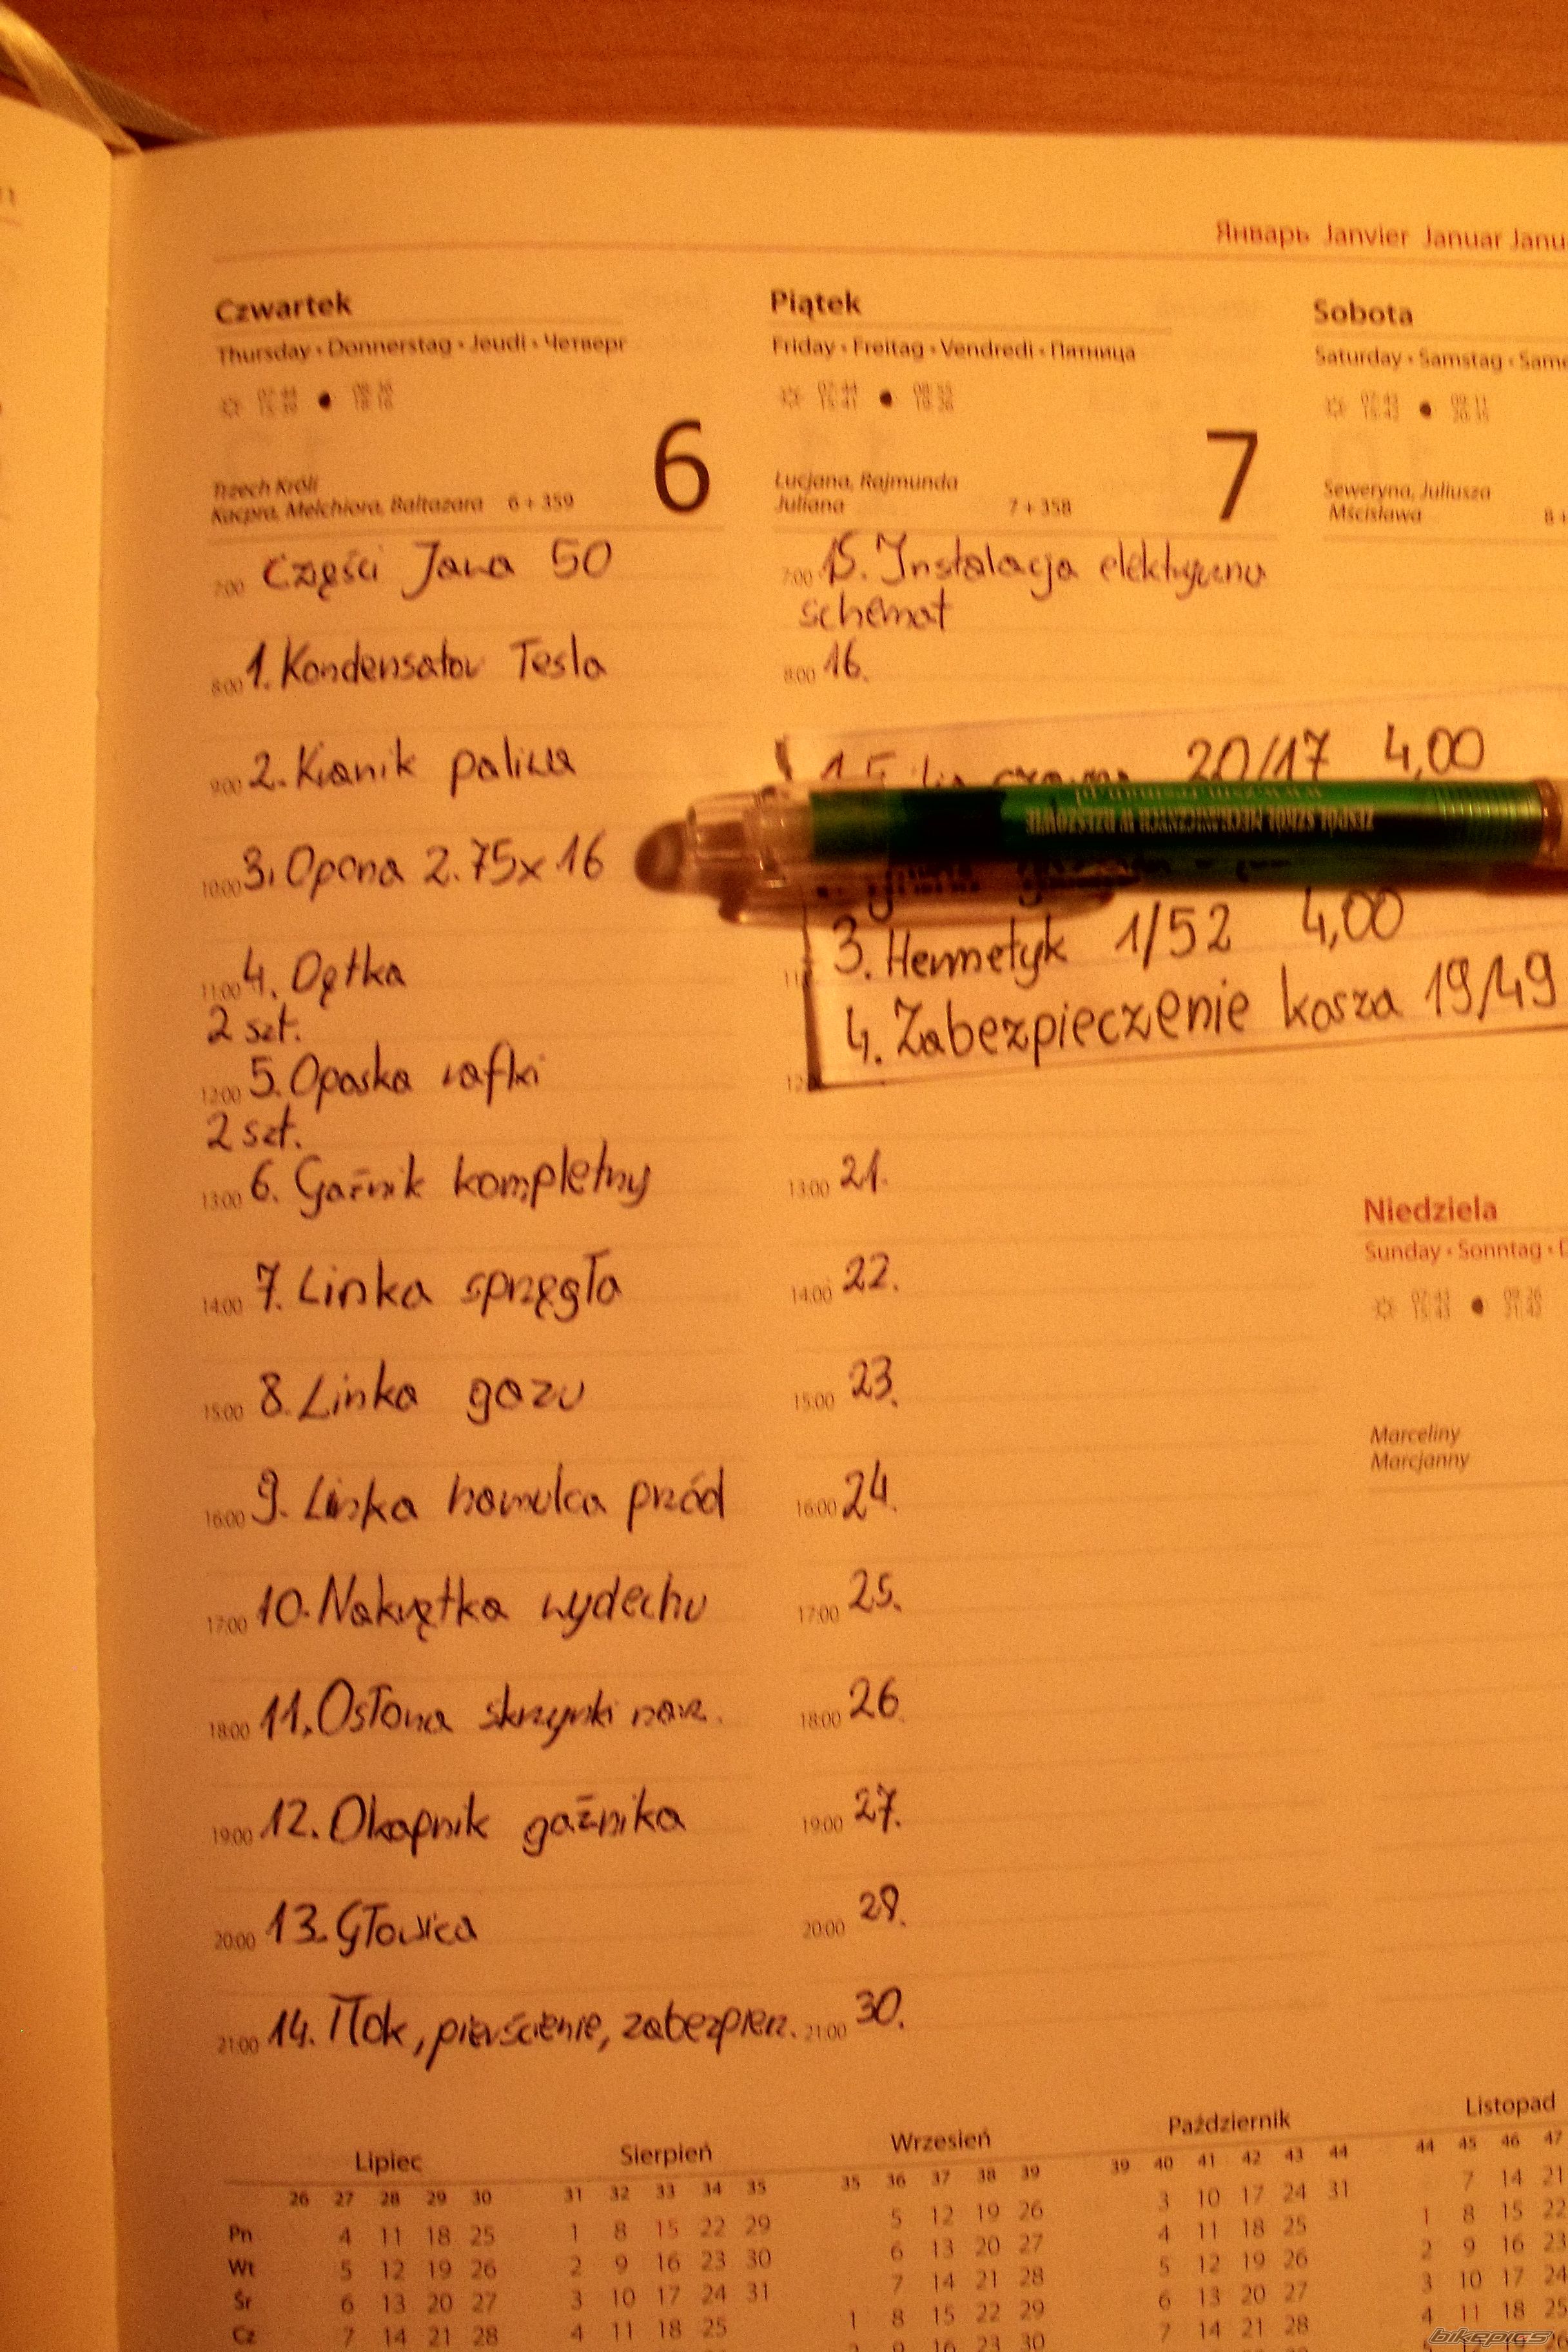 Январь Janvier Januar
Czwartek
Thursday • Donnerstag • Jeudi • Четверг
6
Trzech Króli
Kacpra, Melchiora, Baltazara 6 + 359
Części Jawa 50
7:00
8:00 1. Kondensator Tesla
9:00 2. Kranik paliwa
10:00 3. Opona 2.75x16
11:00 4. Dętka
2 szt.
12:00 5. Opaska rafki
2 szt.
13:00 6. Gaźnik kompletny
14:00 7. Linka sprzęgła
15:00 8. Linka gazu
16:00 9. Linka hamulca przód
17:00 10. Nakrętka wydechu
18:00 11. Osłona skrzynki narz.
19:00 12. Okapnik gaźnika
20:00 13. Głowica
21:00 14. Tłok, pierścienie, zabezpiecz.
Piątek
Friday • Freitag • Vendredi • Пятница
7
Lucjana, Rajmunda
Juliana 7 + 358
7:00 15. Instalacja elektryczna
schemat
8:00 16.
20/17 4,00
ZESPÓŁ SZKÓŁ MECHANICZNYCH W RZESZOWIE
3. Hermetyk 1/52 4,00
4. Zabezpieczenie kosza 19/49
13:00 21.
14:00 22.
15:00 23.
16:00 24.
17:00 25.
18:00 26.
19:00 27.
20:00 28.
21:00 30.
Sobota
Saturday • Samstag
Seweryna, Juliusza
Mścisława
Niedziela
Sunday • Sonntag
Marceliny
Marcjanny
Lipiec Sierpień Wrzesień Październik Listopad
26 27 28 29 30 31 32 33 34 35 35 36 37 38 39 39 40 41 42 43 44 44 45 46 47
Pn 4 11 18 25 1 8 15 22 29 5 12 19 26 3 10 17 24 31 7 14 21
Wt 5 12 19 26 2 9 16 23 30 6 13 20 27 4 11 18 25 1 8 15 22
Śr 6 13 20 27 3 10 17 24 31 7 14 21 28 5 12 19 26 2 9 16 23
Cz 7 14 21 28 4 11 18 25 1 8 15 22 29 6 13 20 27 3 10 17 24
2 9 16 23 30 7 14 21 28 4 11 18 25
bikepics